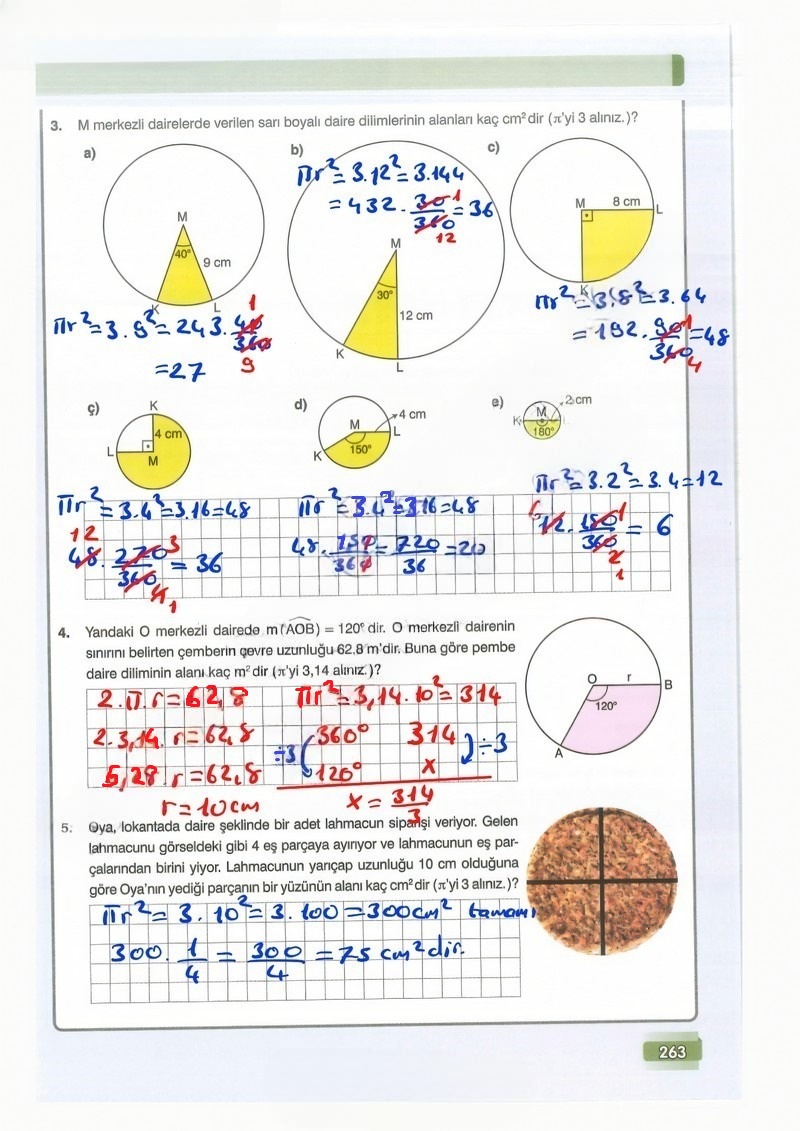 3. M merkezli dairelerde verilen sarı boyalı daire dilimlerinin alanları kaç cm² dir (π'yi 3 alınız.)?
a)
M
40°
9 cm
K
L
πr² = 3.9² = 243.40/360 1 9
= 27
b)
πr² = 3.12² = 3.144
= 432.30/360 = 36 1 12
M
30°
12 cm
K
L
c)
M
8 cm
L
K
πr² = 3.8² = 3.64
= 192.90/360 = 48 1 4
ç)
K
4 cm
L
M
πr² = 3.4² = 3.16 = 48
12 48.270/360 = 36 3 4 1
d)
M
4 cm
L
150°
K
πr² = 3.4² = 3.16 = 48
48.150/360 = 720/36 = 20
e)
2 cm
K
M
L
180°
πr² = 3.2² = 3.4 = 12
12.180/360 = 6 1 2 1
4. Yandaki O merkezli dairede m(AOB) = 120° dir. O merkezli dairenin
sınırını belirten çemberin çevre uzunluğu 62,8 m'dir. Buna göre pembe
daire diliminin alanı kaç m² dir (π'yi 3,14 alınız.)?
2.π.r = 62,8
2.3,14.r = 62,8
6,28.r = 62,8
r = 10 cm
πr² = 3,14.10² = 314
360° 314
÷3 120° x ÷3
x = 314/3
O
r
B
120°
A
5. Oya, lokantada daire şeklinde bir adet lahmacun siparişi veriyor. Gelen
lahmacunu görseldeki gibi 4 eş parçaya ayırıyor ve lahmacunun eş par-
çalarından birini yiyor. Lahmacunun yarıçap uzunluğu 10 cm olduğuna
göre Oya'nın yediği parçanın bir yüzünün alanı kaç cm² dir (π'yi 3 alınız.)?
πr² = 3.10² = 3.100 = 300cm² tamamı
300.1/4 = 300/4 = 75 cm² dir.
263